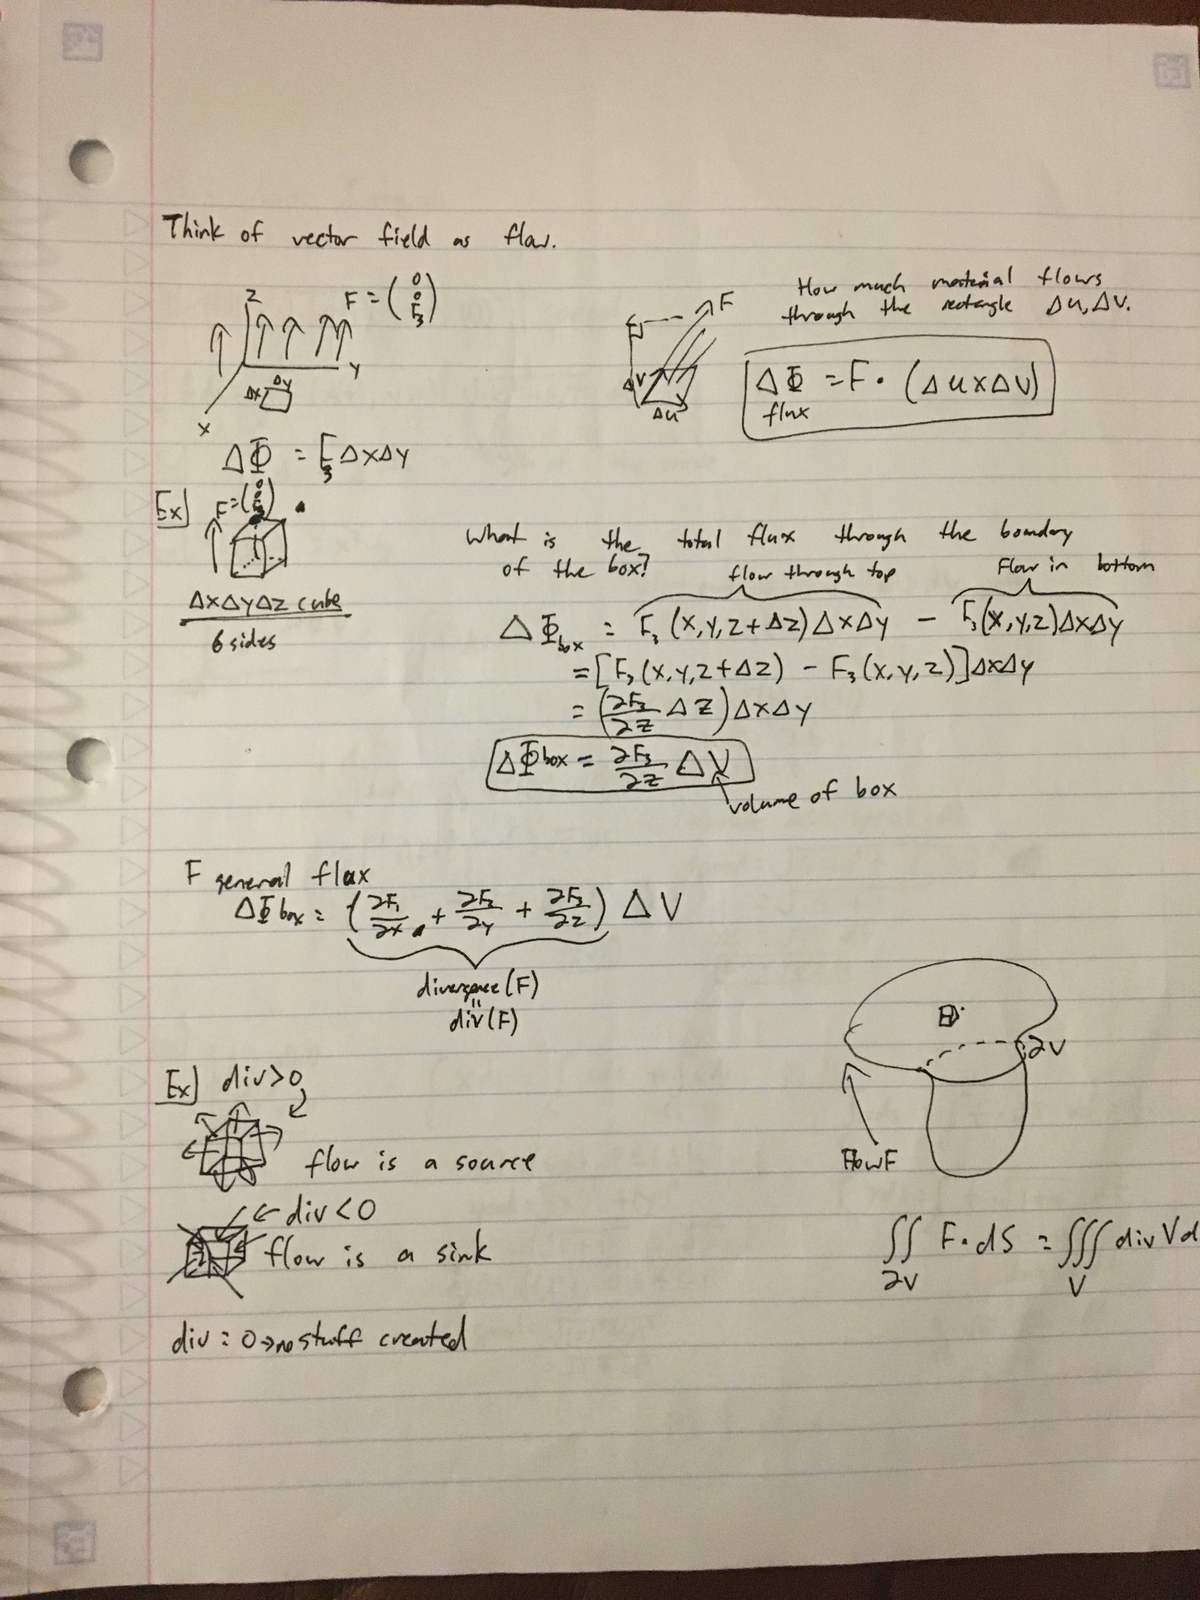 Think of vector field as flow.
Z
F = (0 0 F₃)
Y
Δx Δy
X
ΔΦ = F₃ΔxΔy
F
ΔV
Δu
How much material flows
through the rectangle Δu, ΔV.
ΔΦ = F • (Δu x ΔV)
flux
Ex] F = (0 0 F₃)
ΔxΔyΔz cube
6 sides
What is the total flux through the boundary
of the box?
flow through top Flow in bottom
ΔΦbox = F₃(x,y,z+Δz)ΔxΔy - F₃(x,y,z)ΔxΔy
= [F₃(x,y,z+Δz) - F₃(x,y,z)]ΔxΔy
= (∂F₃/∂z Δz)ΔxΔy
ΔΦbox = ∂F₃/∂z ΔV
volume of box
F general flux
ΔΦbox = (∂F₁/∂x + ∂F₂/∂y + ∂F₃/∂z) ΔV
divergence(F)
=
div(F)
Ex] div>0
flow is a source
← div<0
flow is a sink
div = 0 → no stuff created
∂V
Flow F
∬ F•dS = ∭ div V d
∂V V